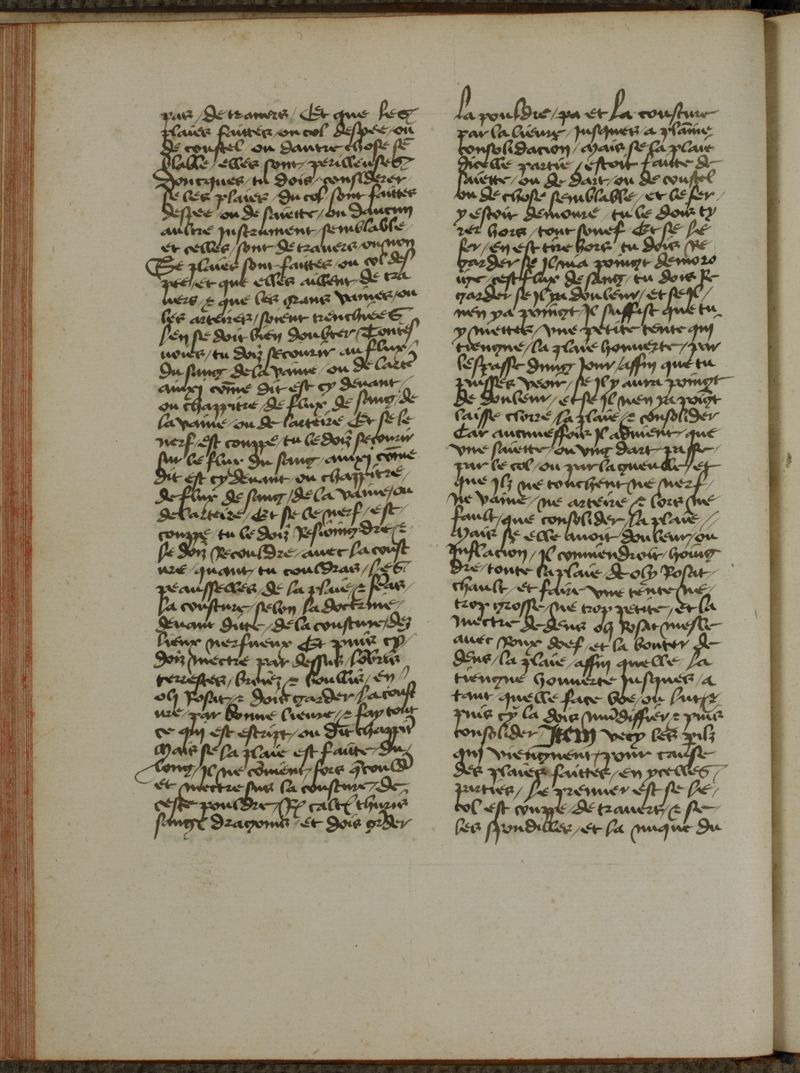 par / de travers / Et que les
plaies faittes / on col despee / ou
de coustel ou dautre chose se
blable / elles sont / perilleuses
Doncques / tu dois / considerer
se les plaies / du col sont faittes
despee / ou de saiette / ou daucun
aultre instrument semblable /
et celles / sont de travers / ou non
Se plaies sont faittes / ou col des
pee / et que elles aillent de tra
vers / et que les grans vaines / ou
les arteires / soient trenchiees
len se doit bien doubter / Toutes
voies / tu doiz secourir au flux /
du sang de la vaine / ou de lartere
ainxi come dit est cy devant /
ou chappitre / de flux de sang / de
la vaine / ou de larteire Et se le
nerf / est couppe / tu le doiz secourir
sur le flux du sang / ainxi come
dit est cy devant ou chappitre /
de flux de sang / de la vaine / ou
de larteire / Et se le nerf / est /
couppe / tu le doiz resioingdre / et
le doiz recouldre / avec la coust
ure / quant / tu couldras / les
peausselles / de la plaie / et feras /
la cousture / selon la doctrine /
devant ditte / de la cousture / dez
lieux nerfueux Et puis cy /
doiz mectre par dessus / lobris
terestres / broiez / et boullis / en /
oly rosat / et dois garder / la coust
ure / par bonne lieure / et fay tout
ce qui est escript / ou dit chappitre
Mais se la plaie est faitte du /
long / il ne convient / fors que couldre
et mectre sus la cousture / de /
ceste pouldre / Rx calcis thuris
sangis dragonis / et dois garder
La pouldre / pa et La cousture
par la lieure / Jusques a plaine
consolidacion / Mais se la plaie
dicelle partie / estoit faitte de
saiette / ou de dart / ou de coustel
ou de chose semblable / et le fer /
y estoit demoure / tu le dois ty
rer hors / tout souef Et se le
fer / en est tire hors / tu dois re
garder se il ny a poingt demoro
ige / cest flux de sang / tu dois re
garder se il ya douleur / et se il /
nen ya poingt Il suffist que tu
y mettes / une petite tente qui
tiengne / la plaie houverte / par
lespasse dung jour / affin que tu
puisses veoir / se il y aura poingt
de douleur / et se il nen ya poigt
laisse clorre / la plaie / et consolider
Car aucuneffois Il advient / que
une saiette / ou ung dart passe /
par le col / ou par la gueulle / et
que ilz ne touchent / ne nerf /
ne vaine / ne arteire / et lors ne
fault / que consolider la plaie //
Mais se elle avoit douleur / ou
inflacion / Il conviendroit / hoing
dre / toute la plaie de oly rosat /
chault / et faire une tente / ne /
trop grosse / ne trop petite / et la
mectre dedens oly rosat mesle
avec roux doef / et la bouter de
dens / la plaie / affin quelle la
tiengne houverte jusques / a
tant quelle face boe / ou lutee
puis cy la dois mundiffier / et puis
consolider Item vecy les perilz
qui viengnent / pour cause
des plaies faittes / en ycelles
parties / Le premier est se le /
col est couppe / de travers / et se /
les spondilles / et la nuque du